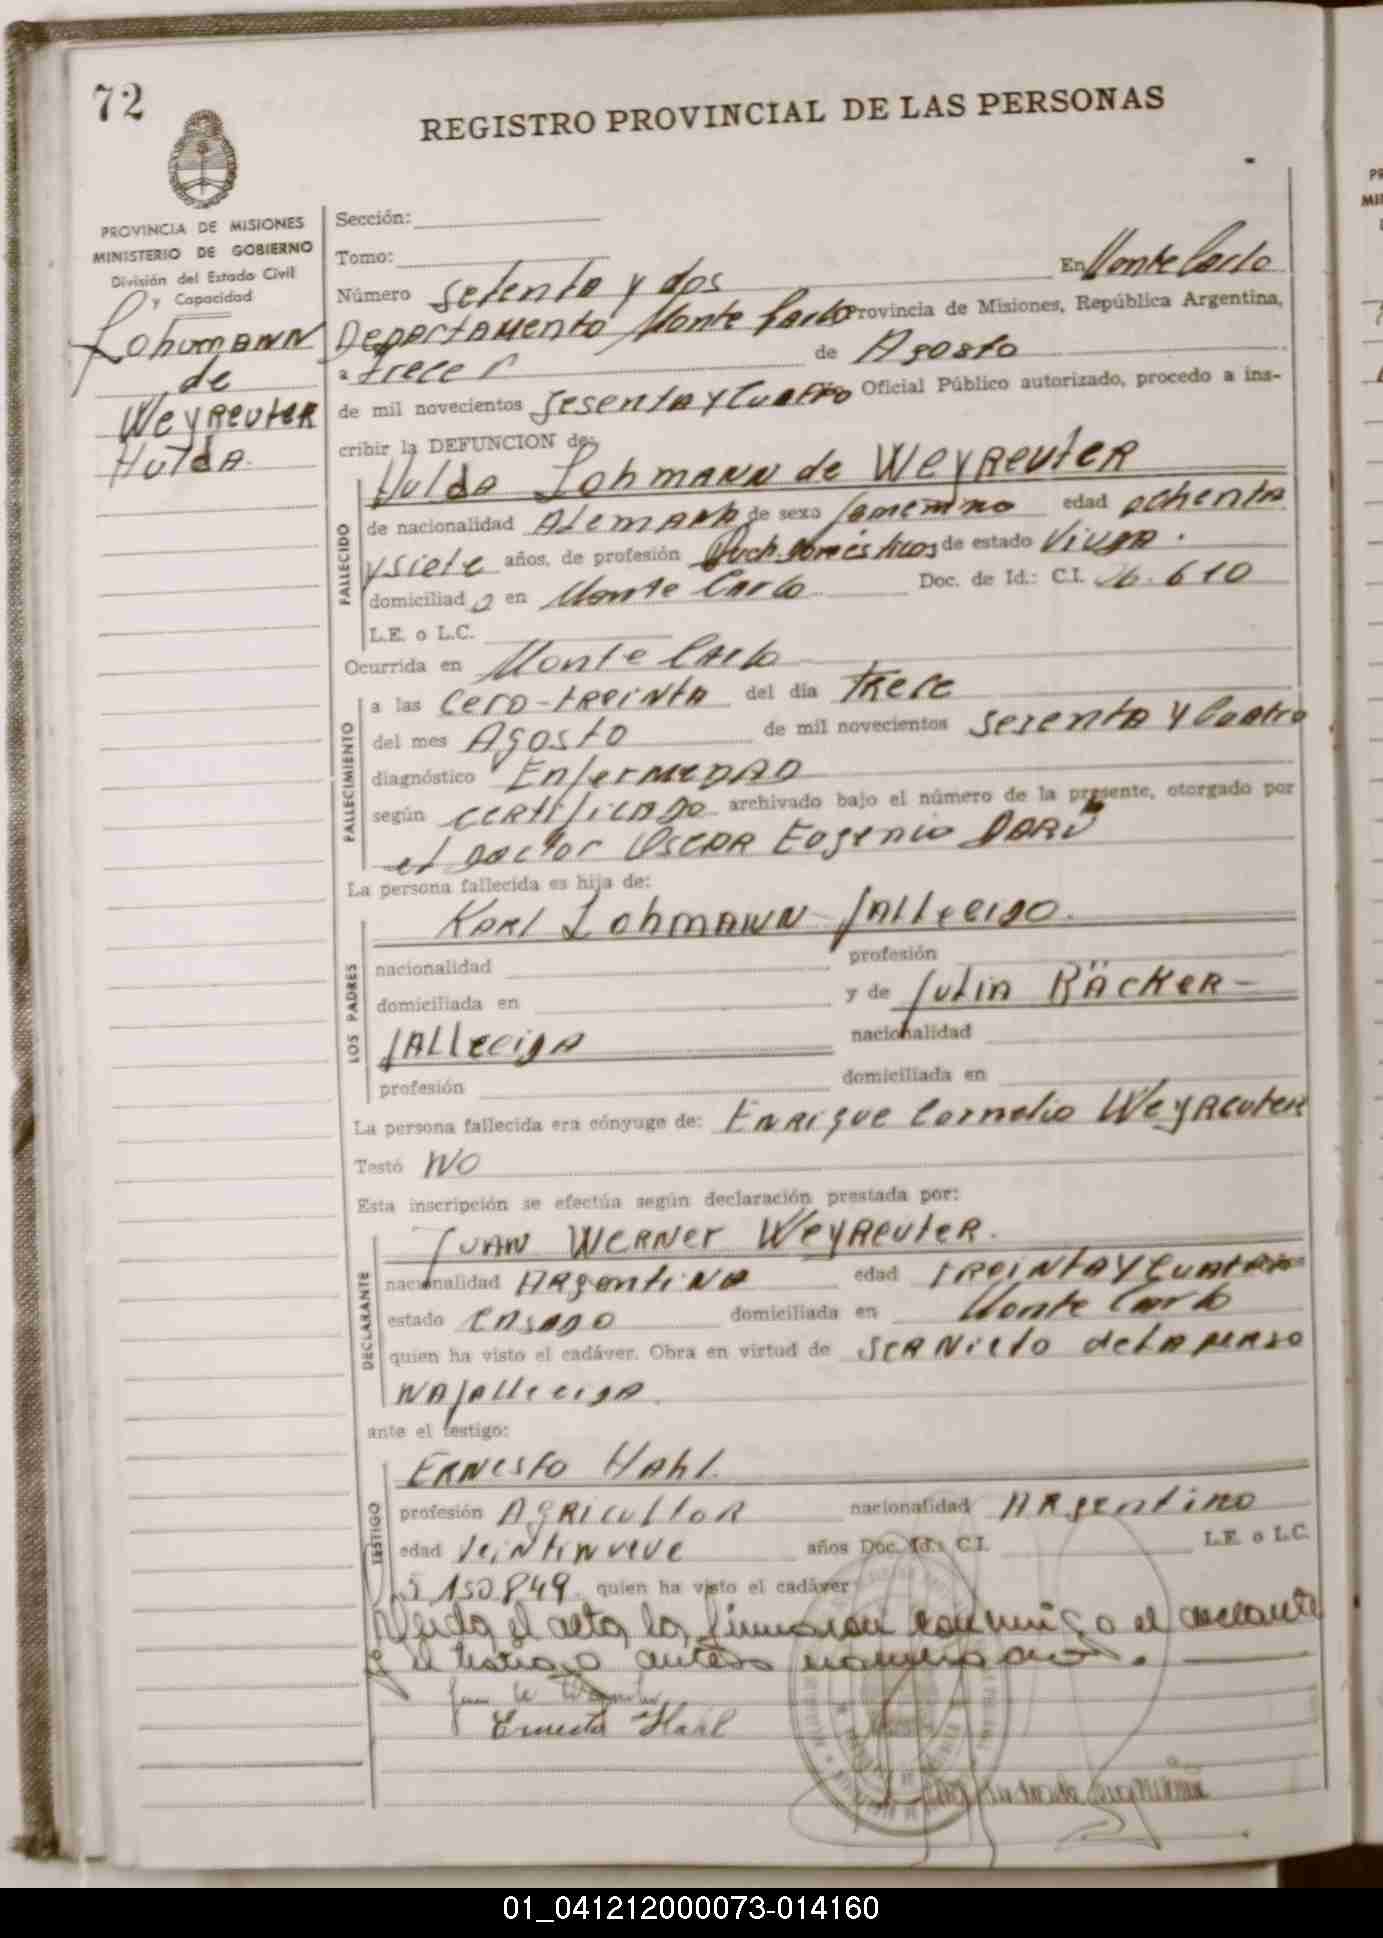 72
REGISTRO PROVINCIAL DE LAS PERSONAS
PROVINCIA DE MISIONES
MINISTERIO DE GOBIERNO
División del Estado Civil
y Capacidad
Lohmann
de
Weyreuter
Hulda.
Sección:
Tomo: En Monte Carlo
Número setenta y dos
Departamento Monte Carlo Provincia de Misiones, República Argentina,
a trece de Agosto
de mil novecientos sesenta y Cuatro Oficial Público autorizado, procedo a ins-
cribir la DEFUNCION de:
Hulda Lohmann de Weyreuter
FALLECIDO
de nacionalidad Alemana de sexo femenino edad ochenta
y siete años, de profesión domésticos de estado Viuda.
domiciliad a en Monte Carlo Doc. de Id.: C.I. 26.610
L.E. o L.C.
Ocurrida en Monte Carlo
FALLECIMIENTO
a las Cero-treinta del día trece
del mes Agosto de mil novecientos sesenta y Cuatro
diagnóstico Enfermedad
según certificado archivado bajo el número de la presente, otorgado por
el Doctor Oscar Eugenio Darú
La persona fallecida es hija de:
LOS PADRES
Karl Lohmann fallecido.
nacionalidad profesión
domiciliada en y de Julia Bäcker -
fallecida nacionalidad
profesión domiciliada en
La persona fallecida era cónyuge de: Enrique Cornelio Weyreuter
Testó NO
Esta inscripción se efectúa según declaración prestada por:
DECLARANTE
Juan Werner Weyreuter.
nacionalidad Argentina edad treinta y Cuatro
estado Casado domiciliada en Monte Carlo
quien ha visto el cadáver. Obra en virtud de ser Nieto de la perso
na fallecida.
ante el testigo:
TESTIGO
Ernesto Hahl.
profesión Agricultor nacionalidad Argentino
edad veintinueve años Doc. Id.: C.I. L.E. o L.C.
150849 quien ha visto el cadáver
Leída el acta la firmaron conmigo el declarante
y el testigo antes nombrado.
Ernesto Hahl
01_041212000073-014160